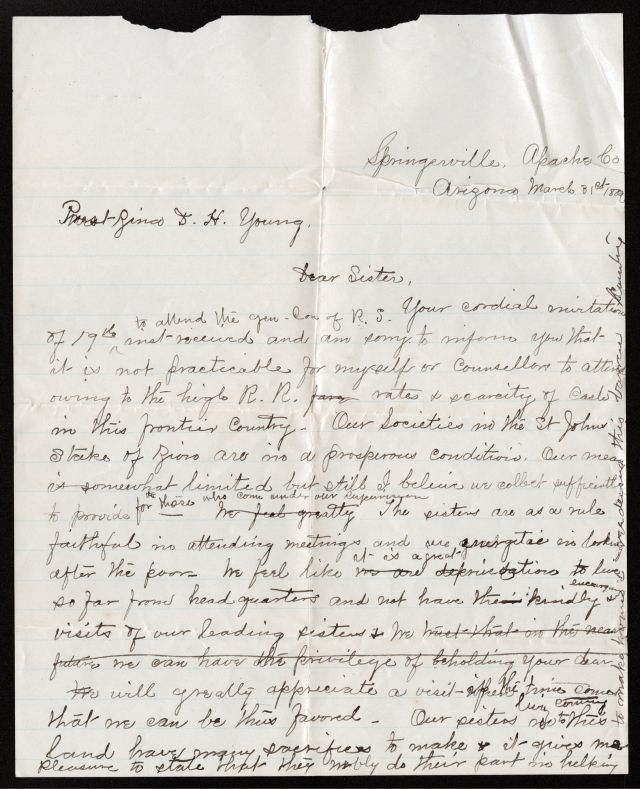 Springerville, Apache Co
Arizona March 31st 1889
Prest Zina D. H. Young,
Dear Sister,
to attend the gen-Con of R. S. Your cordial invitation
of 19th inst received and am sorry to inform you that
it is not practicable for myself or Counsellors to attend
owing to the high R. R. fare rates & scarcity of Cash
in this frontier Country - Our Societies in the St Johns
Stake of Zion are in a prosperous condition. Our means
is somewhat limited but still I believe we collect sufficient
to provide for the those who come under our supervision We feel greatly The sisters are as a rule
faithful in attending meetings and are energetic in looking
after the poor - We feel like it is a great we are deprivation to live
so far from head quarters and not have the kindly & encouraging
visits of our leading sisters & We trust that in the near
future we can have the privilege of beholding your dear
We will greatly appreciate a visit - if the time comes
that we can be thus favored - Our sisters in this
Land have many sacrifices to make & it gives me
pleasure to state that they nobly do their part in helping
to make homes & this barren Country